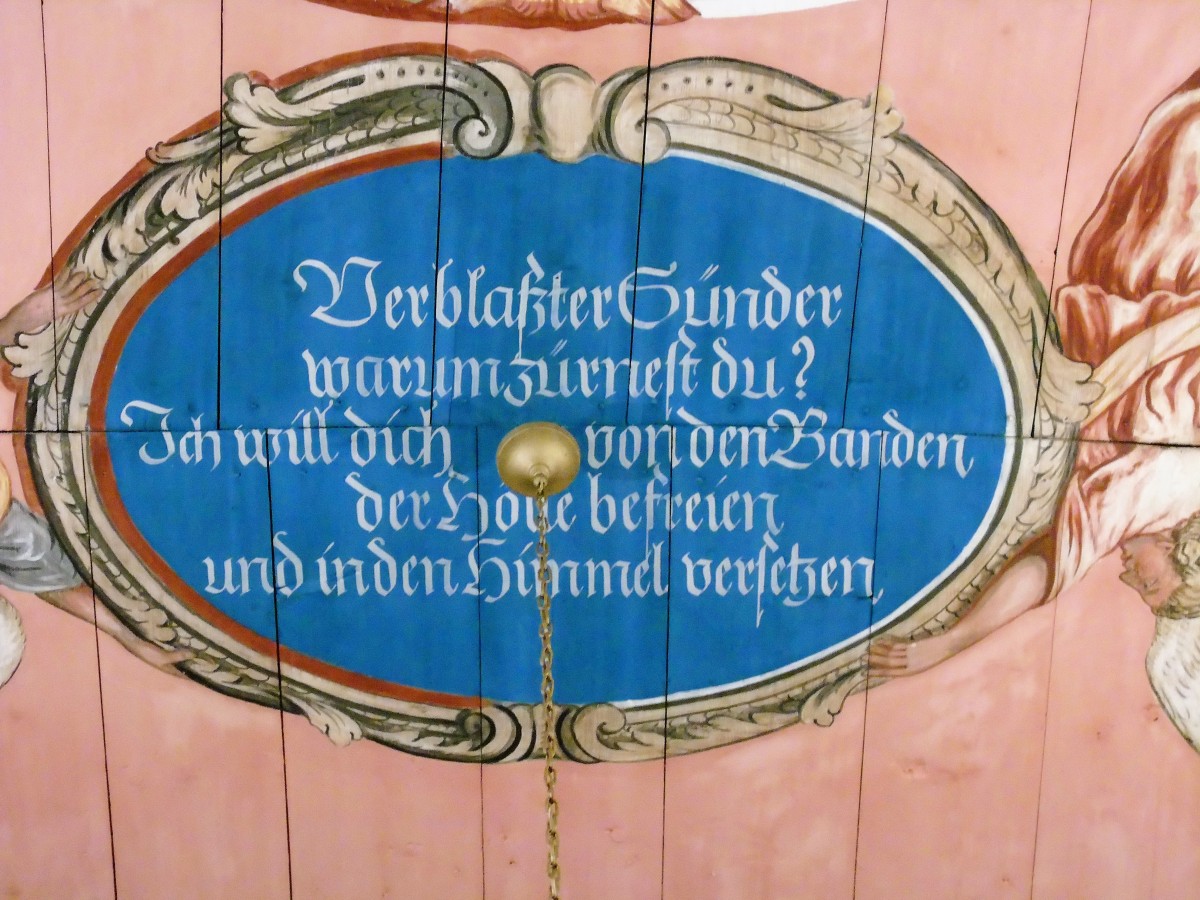 Verblaßter Sünder
warum zürnest du?
Ich will dich von den Banden
der Hölle befreien
und in den Himmel versetzen